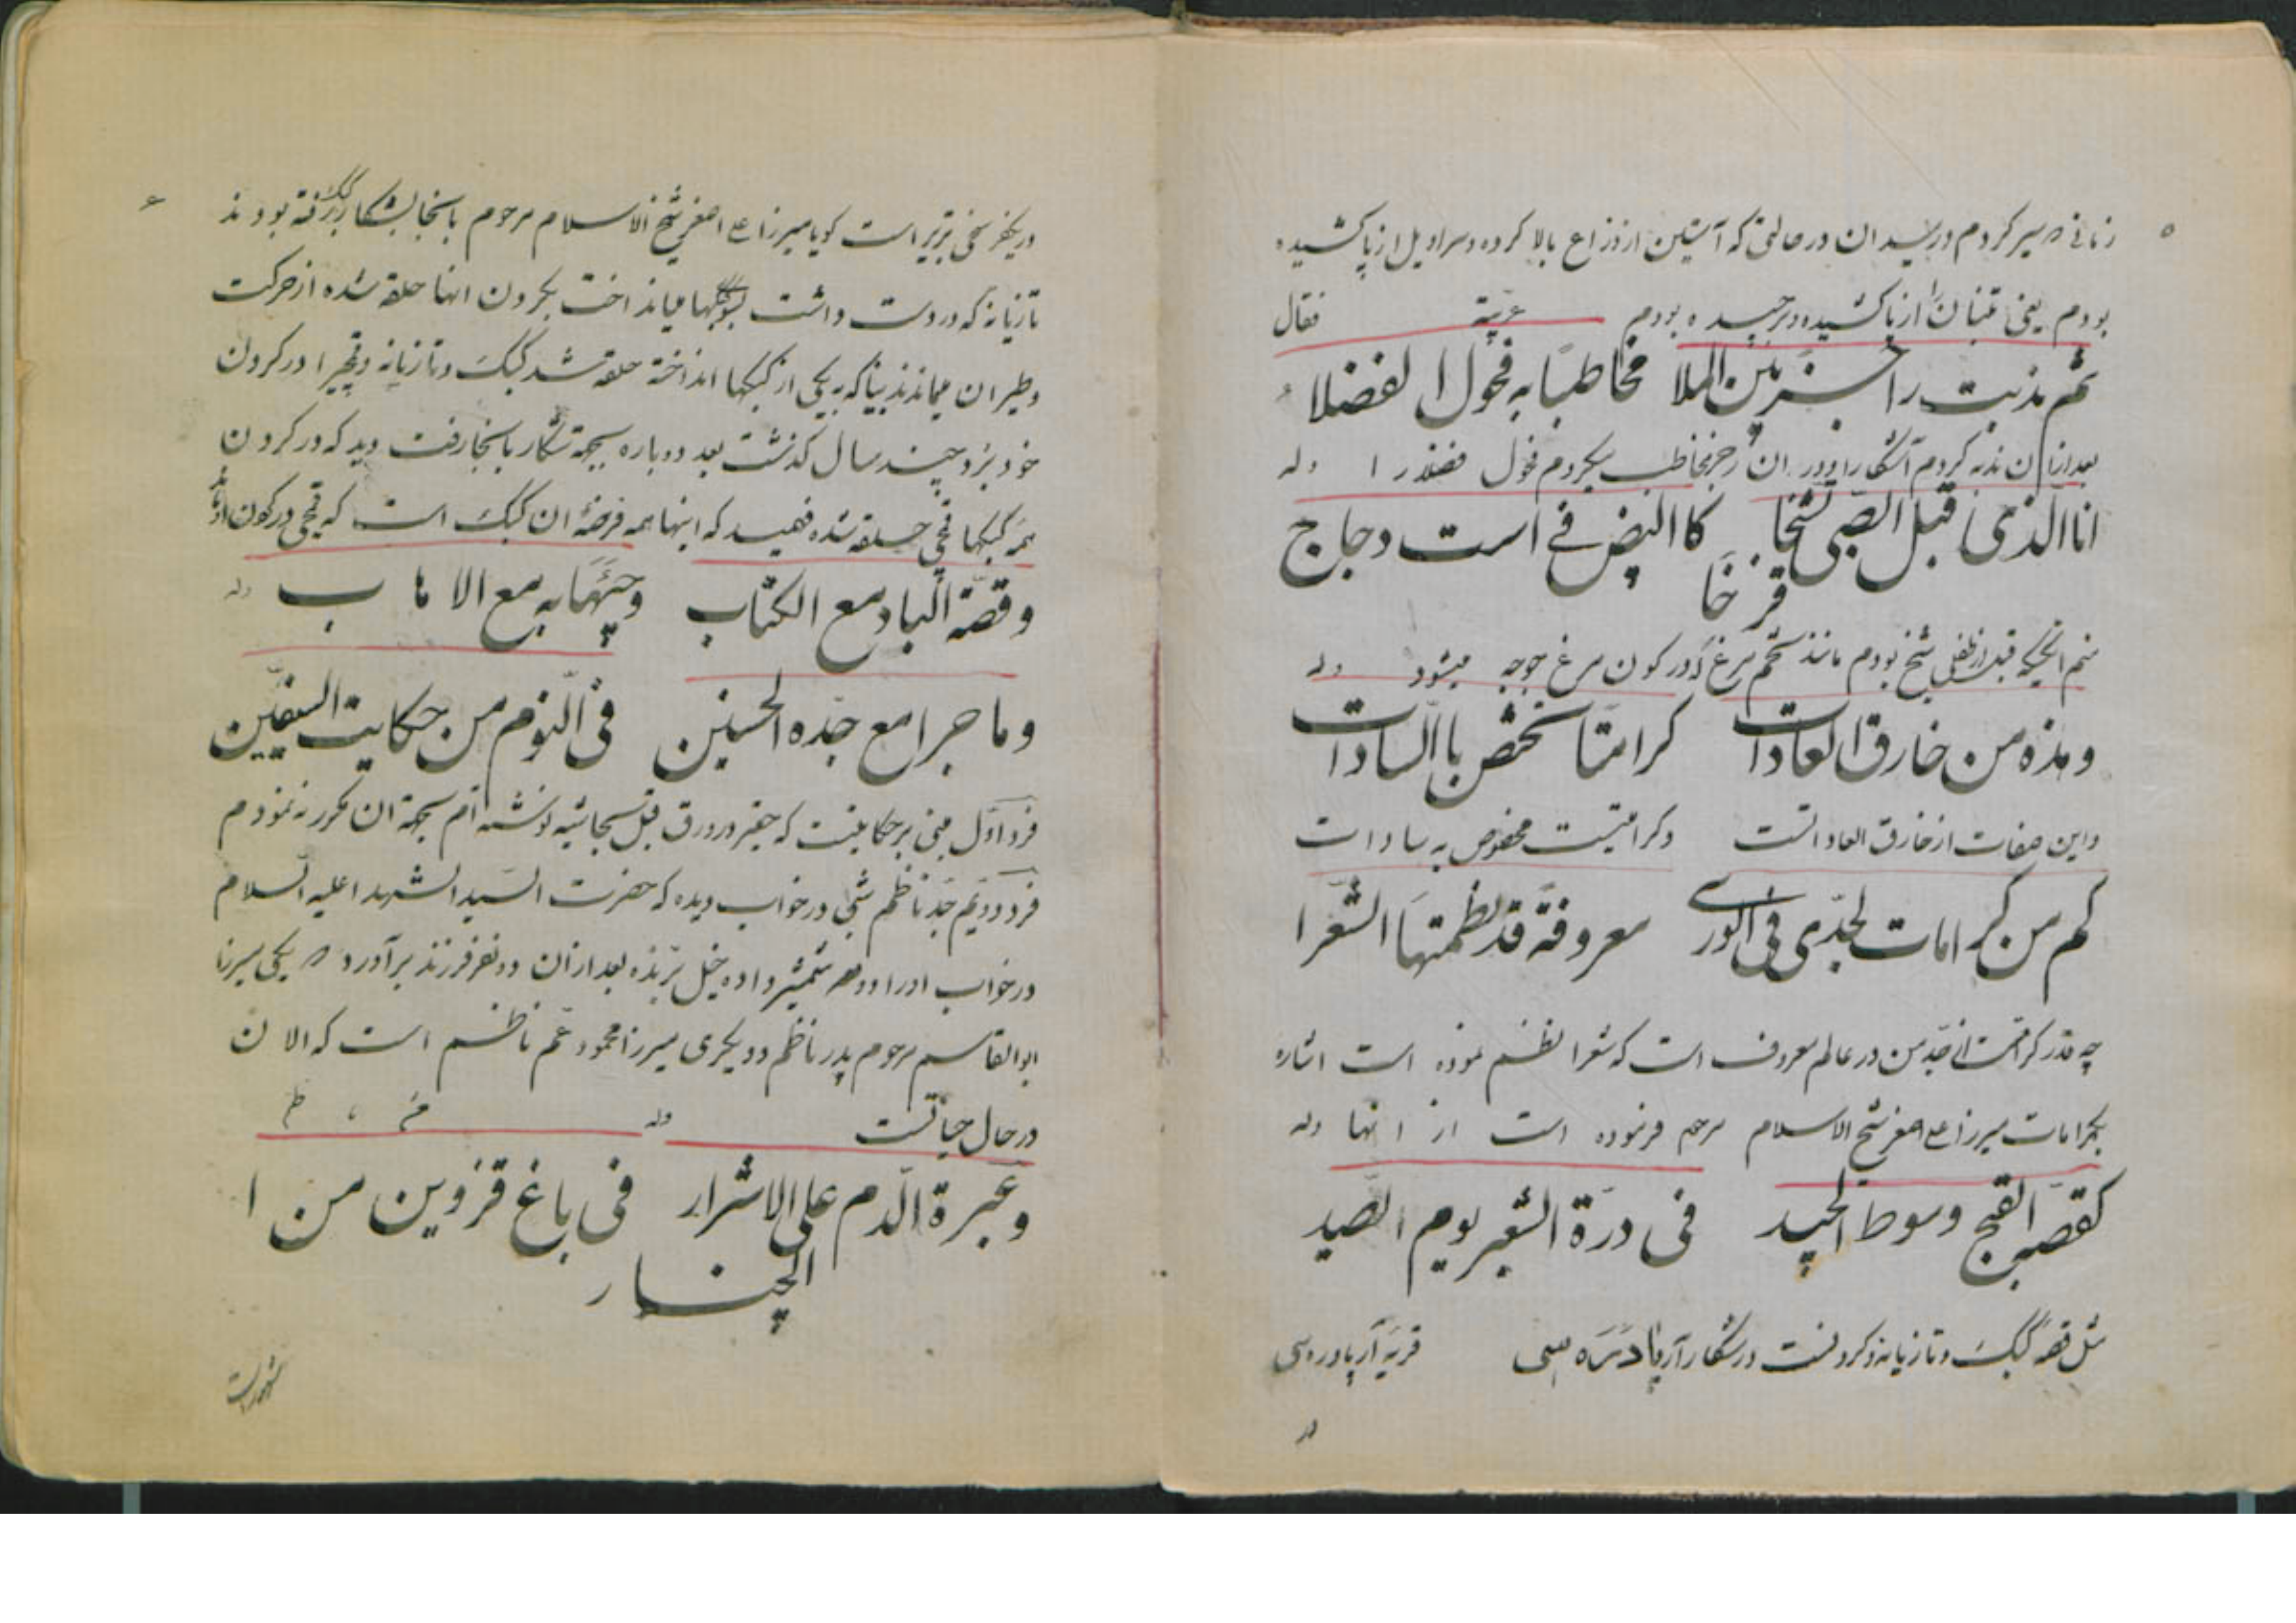 ۵
زمانی سیر کردم در میدان در حالتی که آستین از ذراع بالا کرده و سراویل از پا کشیده
بودم یعنی تنبان را از پا کشیده و برچیده بودم عربیة فقال
ثم ندبت راجز بین الملا مخاطبا به فحول الفضلا
بعد از ان ندبه کردم آشکارا و در ان رجز مخاطب میکردم فحول فضلا را وله
انا الذی قبل الصبی تشیخا کا البیض فی است دجاج
فرخا
منم انچیکه قبل از طفلی شیخ بودم مانند تخم مرغ که در کون مرغ جوجه میشود وله
و هذه من خارق العادات کرامتا تختص با السادات
و این صفات از خارق العاداتست و کرامتیست مخصوص به سادات
کم من کرامات لجدی فی الوری معروفة قد نظمتها الشعرا
چه قدر کرامتهای جد من در عالم معروف است که شعرا نظم نموده است اشاره
بکرامات میرزا علی اصغر شیخ الاسلام مرحوم فرموده است از انها وله
کقصة القبج و سوط الجید فی درة الشعیر یوم الصید
مثل قصه کبک و تازیانه و کردنست در شکار آرپا دره سی قریه آرپا دره سی
در
۶
در یکفرسخی تبریز است کویا میرزا علی اصغر شیخ الاسلام مرحوم بانجا بشکار کبک رفته بودند
تازیانه که در دست داشت بسوی کبکها میانداخت بکردن انها حلقه شده از حرکت
و طیران میماندند بناکه به یکی از کبکها انداخته حلقه شد کبک و تازیانه و قمچیرا در کردن
خود بزد چند سال کذشت بعد دوباره بجهة شکار بانجا رفت دید که در کردن
همه کبکها قمچی حلقه شده فهمید که اینها همه فرخهٔ ان کبک است که قمچی در کردن او ماند
و قصة الباد مع الکتاب و جیئها به مع الاهاب وله
و ما جرا مع جده الحسین فی النوم من حکایت السیفین
فرد اول مبنی بر حکایتیست که حقیر در ورق قبل بحاشیه نوشته‌ام بجهة ان مکرر نه نمودم
فرد دویم جد ناظم شبی در خواب دیده که حضرت السید الشهدا علیه السلام
در خواب اورا دو شمشیر داده خیل بزنده بعد از ان دو نفر فرزند برآورد یکی میرزا
ابو القاسم مرحوم پدر ناظم و دیکری میرزا محمود عم ناظم است که الان
در حال حیاتست وله
و عبرة الدم علی الاشرار فی باغ قزوین من ا
الچنار